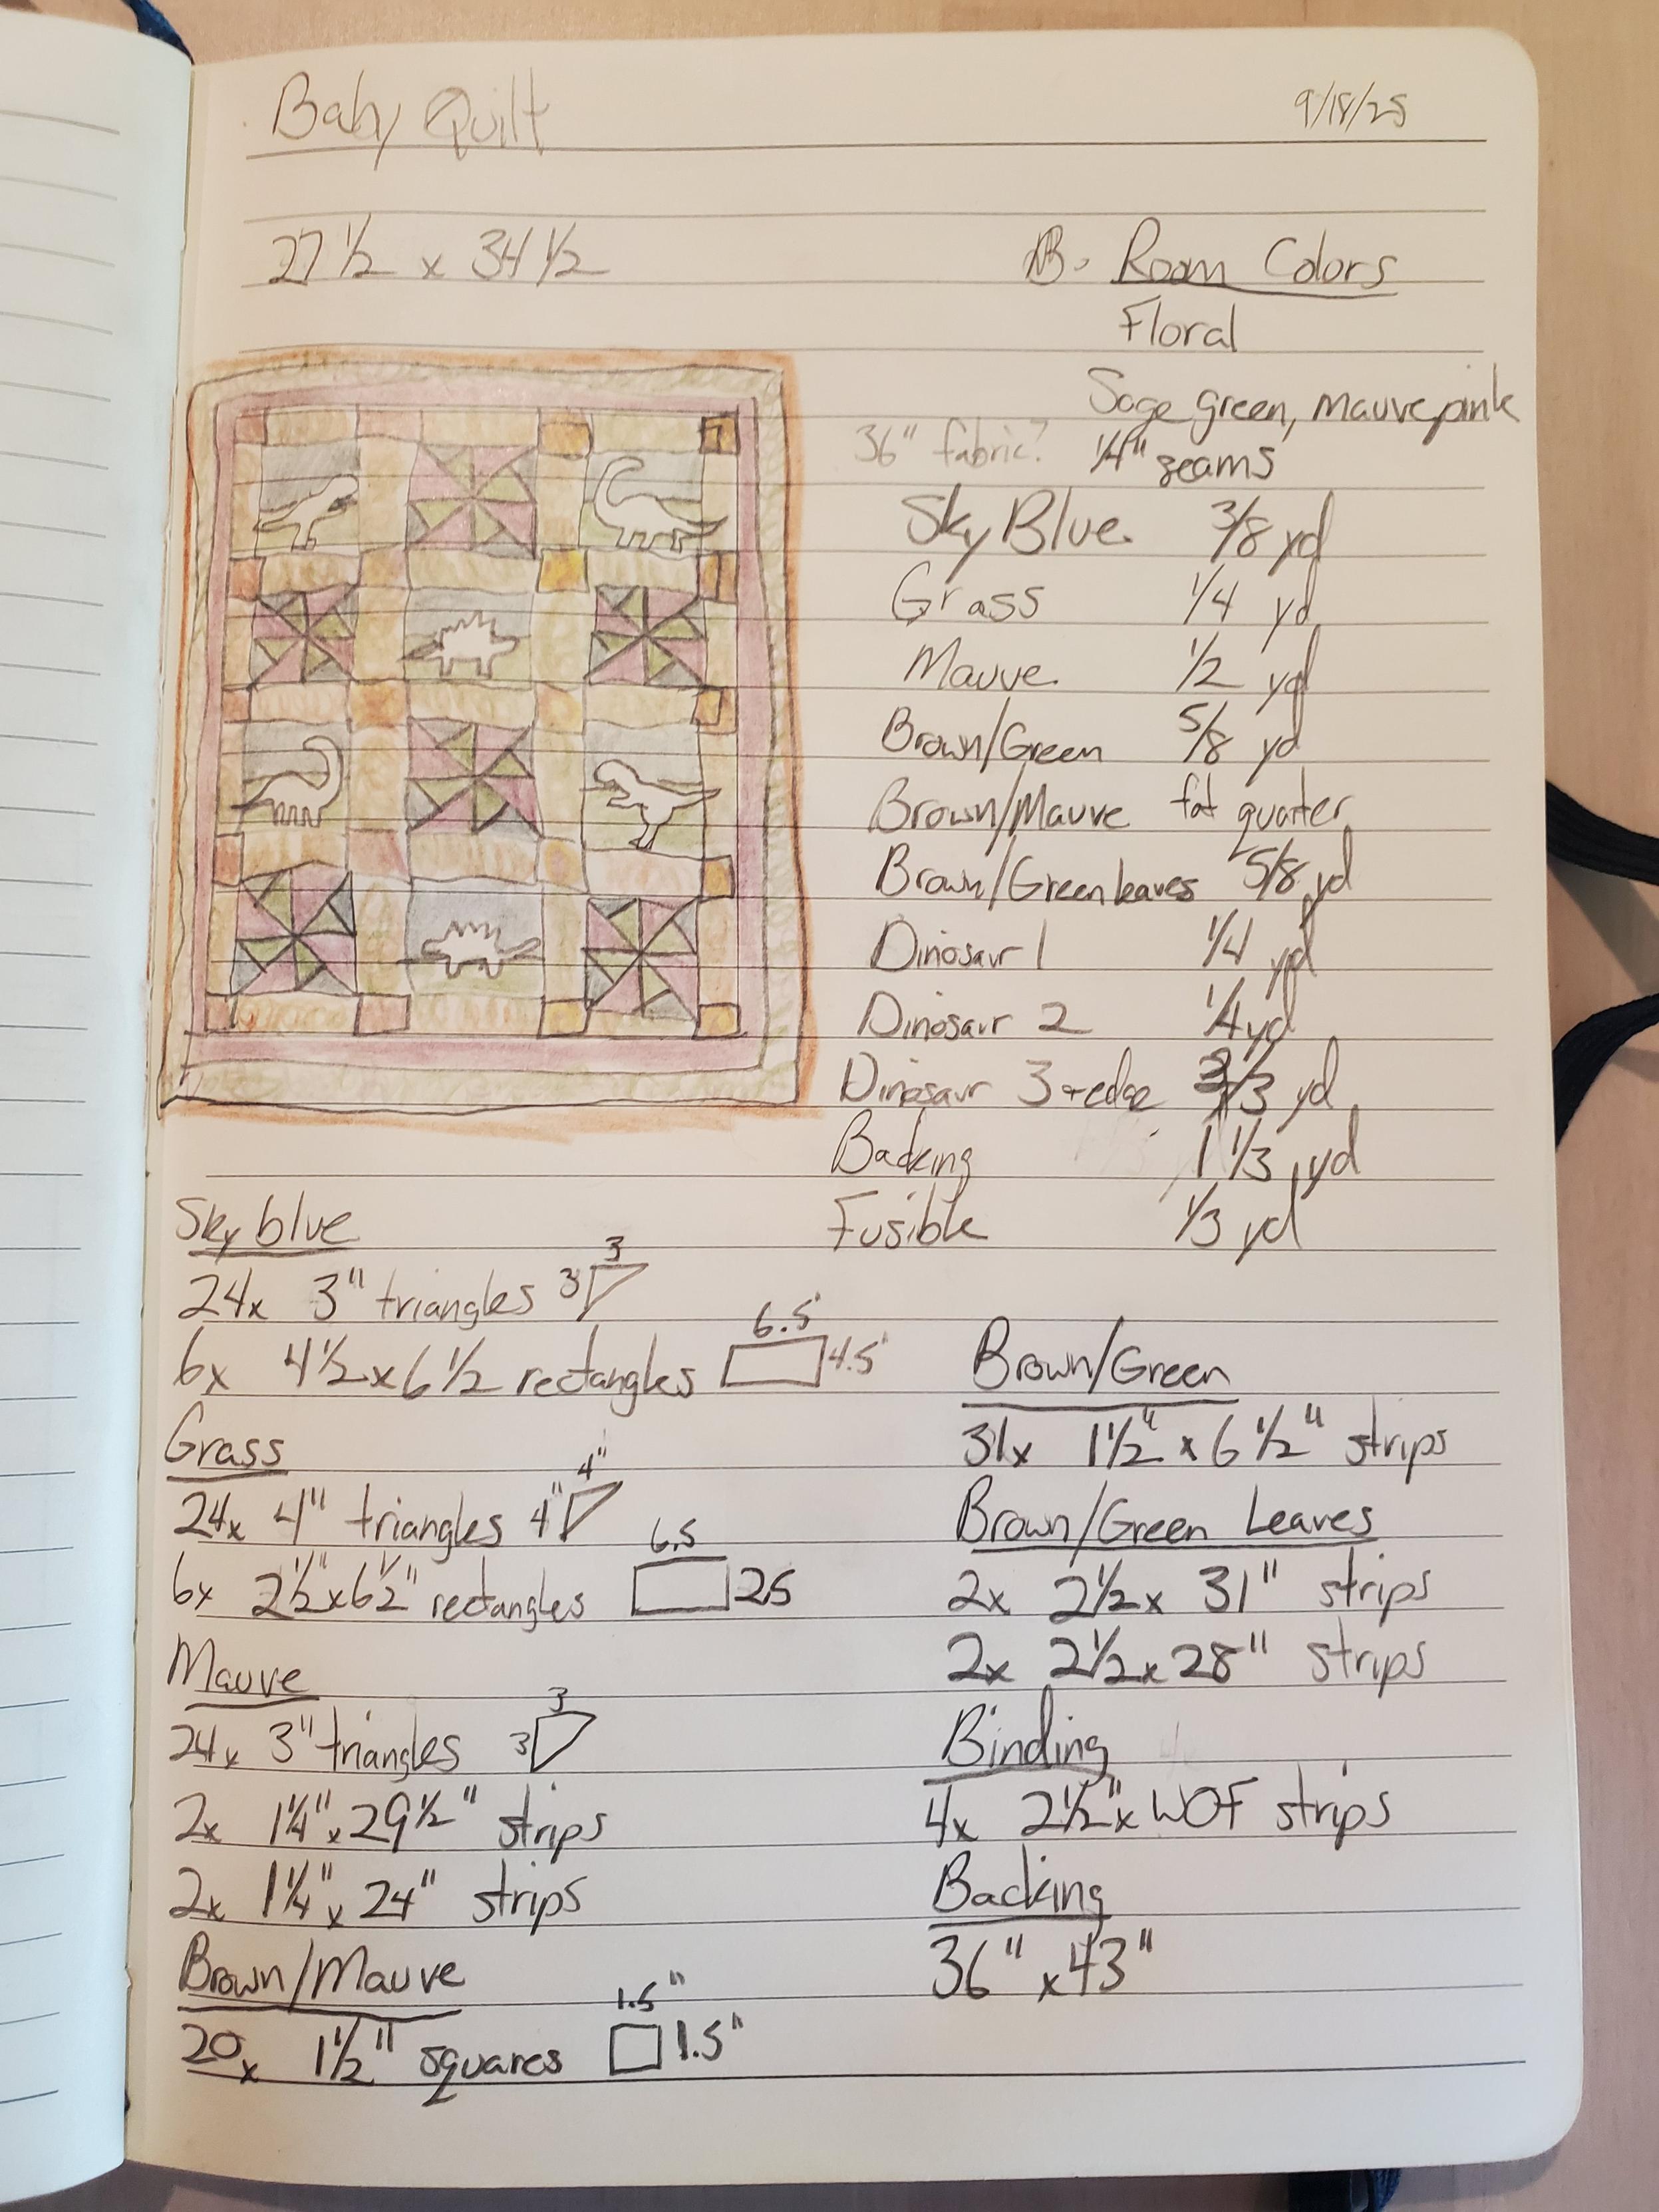 Baby Quilt 9/18/25
27 1/2 x 34 1/2
B. Room Colors
Floral
Sage green, mauve pink
36" fabric? 1/4" seams
Sky Blue 3/8 yd
Grass 1/4 yd
Mauve 1/2 yd
Brown/Green 5/8 yd
Brown/Mauve fat quarter
Brown/Green leaves 5/8 yd
Dinosaur 1 1/4 yd
Dinosaur 2 1/4 yd
Dinosaur 3 + edge /3 yd
Backing 1 1/3 yd
Fusible 1/3 yd
Sky blue
24x 3" triangles 3 3
6x 4 1/2 x 6 1/2 rectangles 6.5" 4.5"
Grass
24x 4" triangles 4" 4"
6x 2 1/2" x 6 1/2" rectangles 6.5 2.5
Mauve
24x 3" triangles 3 3
2x 1 1/4" x 29 1/2" strips
2x 1 1/4" x 24" strips
Brown/Mauve
20x 1 1/2" squares 1.5" 1.5"
Brown/Green
31x 1 1/2" x 6 1/2" strips
Brown/Green Leaves
2x 2 1/2 x 31" strips
2x 2 1/2 x 28" strips
Binding
4x 2 1/2" x WOF strips
Backing
36" x 43"